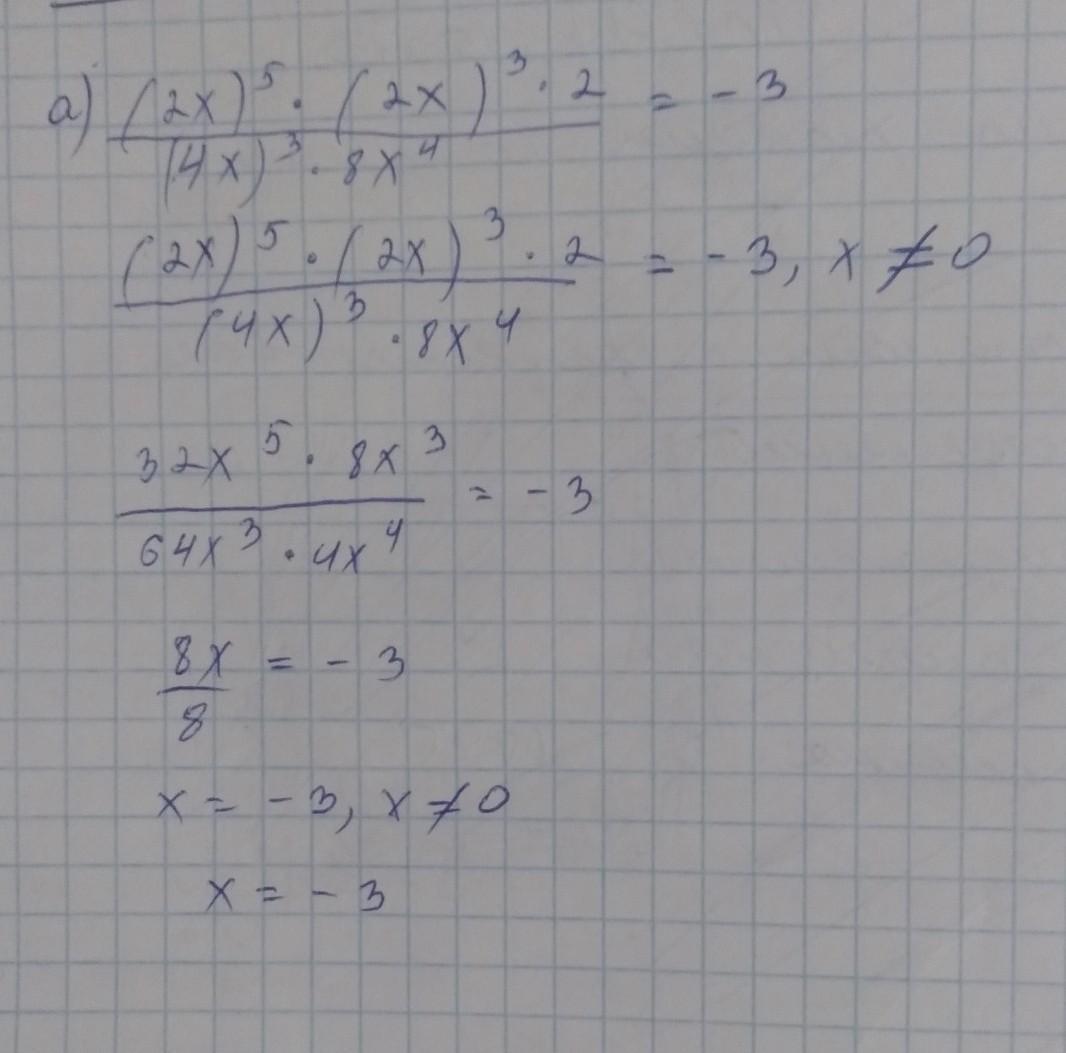 а) (2x)^5 · (2x)^3 · 2 / (4x)^3 · 8x^4 = - 3
(2x)^5 · (2x)^3 · 2 / (4x)^3 · 8x^4 = - 3, x ≠ 0
32x^5 · 8x^3 / 64x^3 · 4x^4 = - 3
8x / 8 = - 3
x = - 3, x ≠ 0
x = - 3